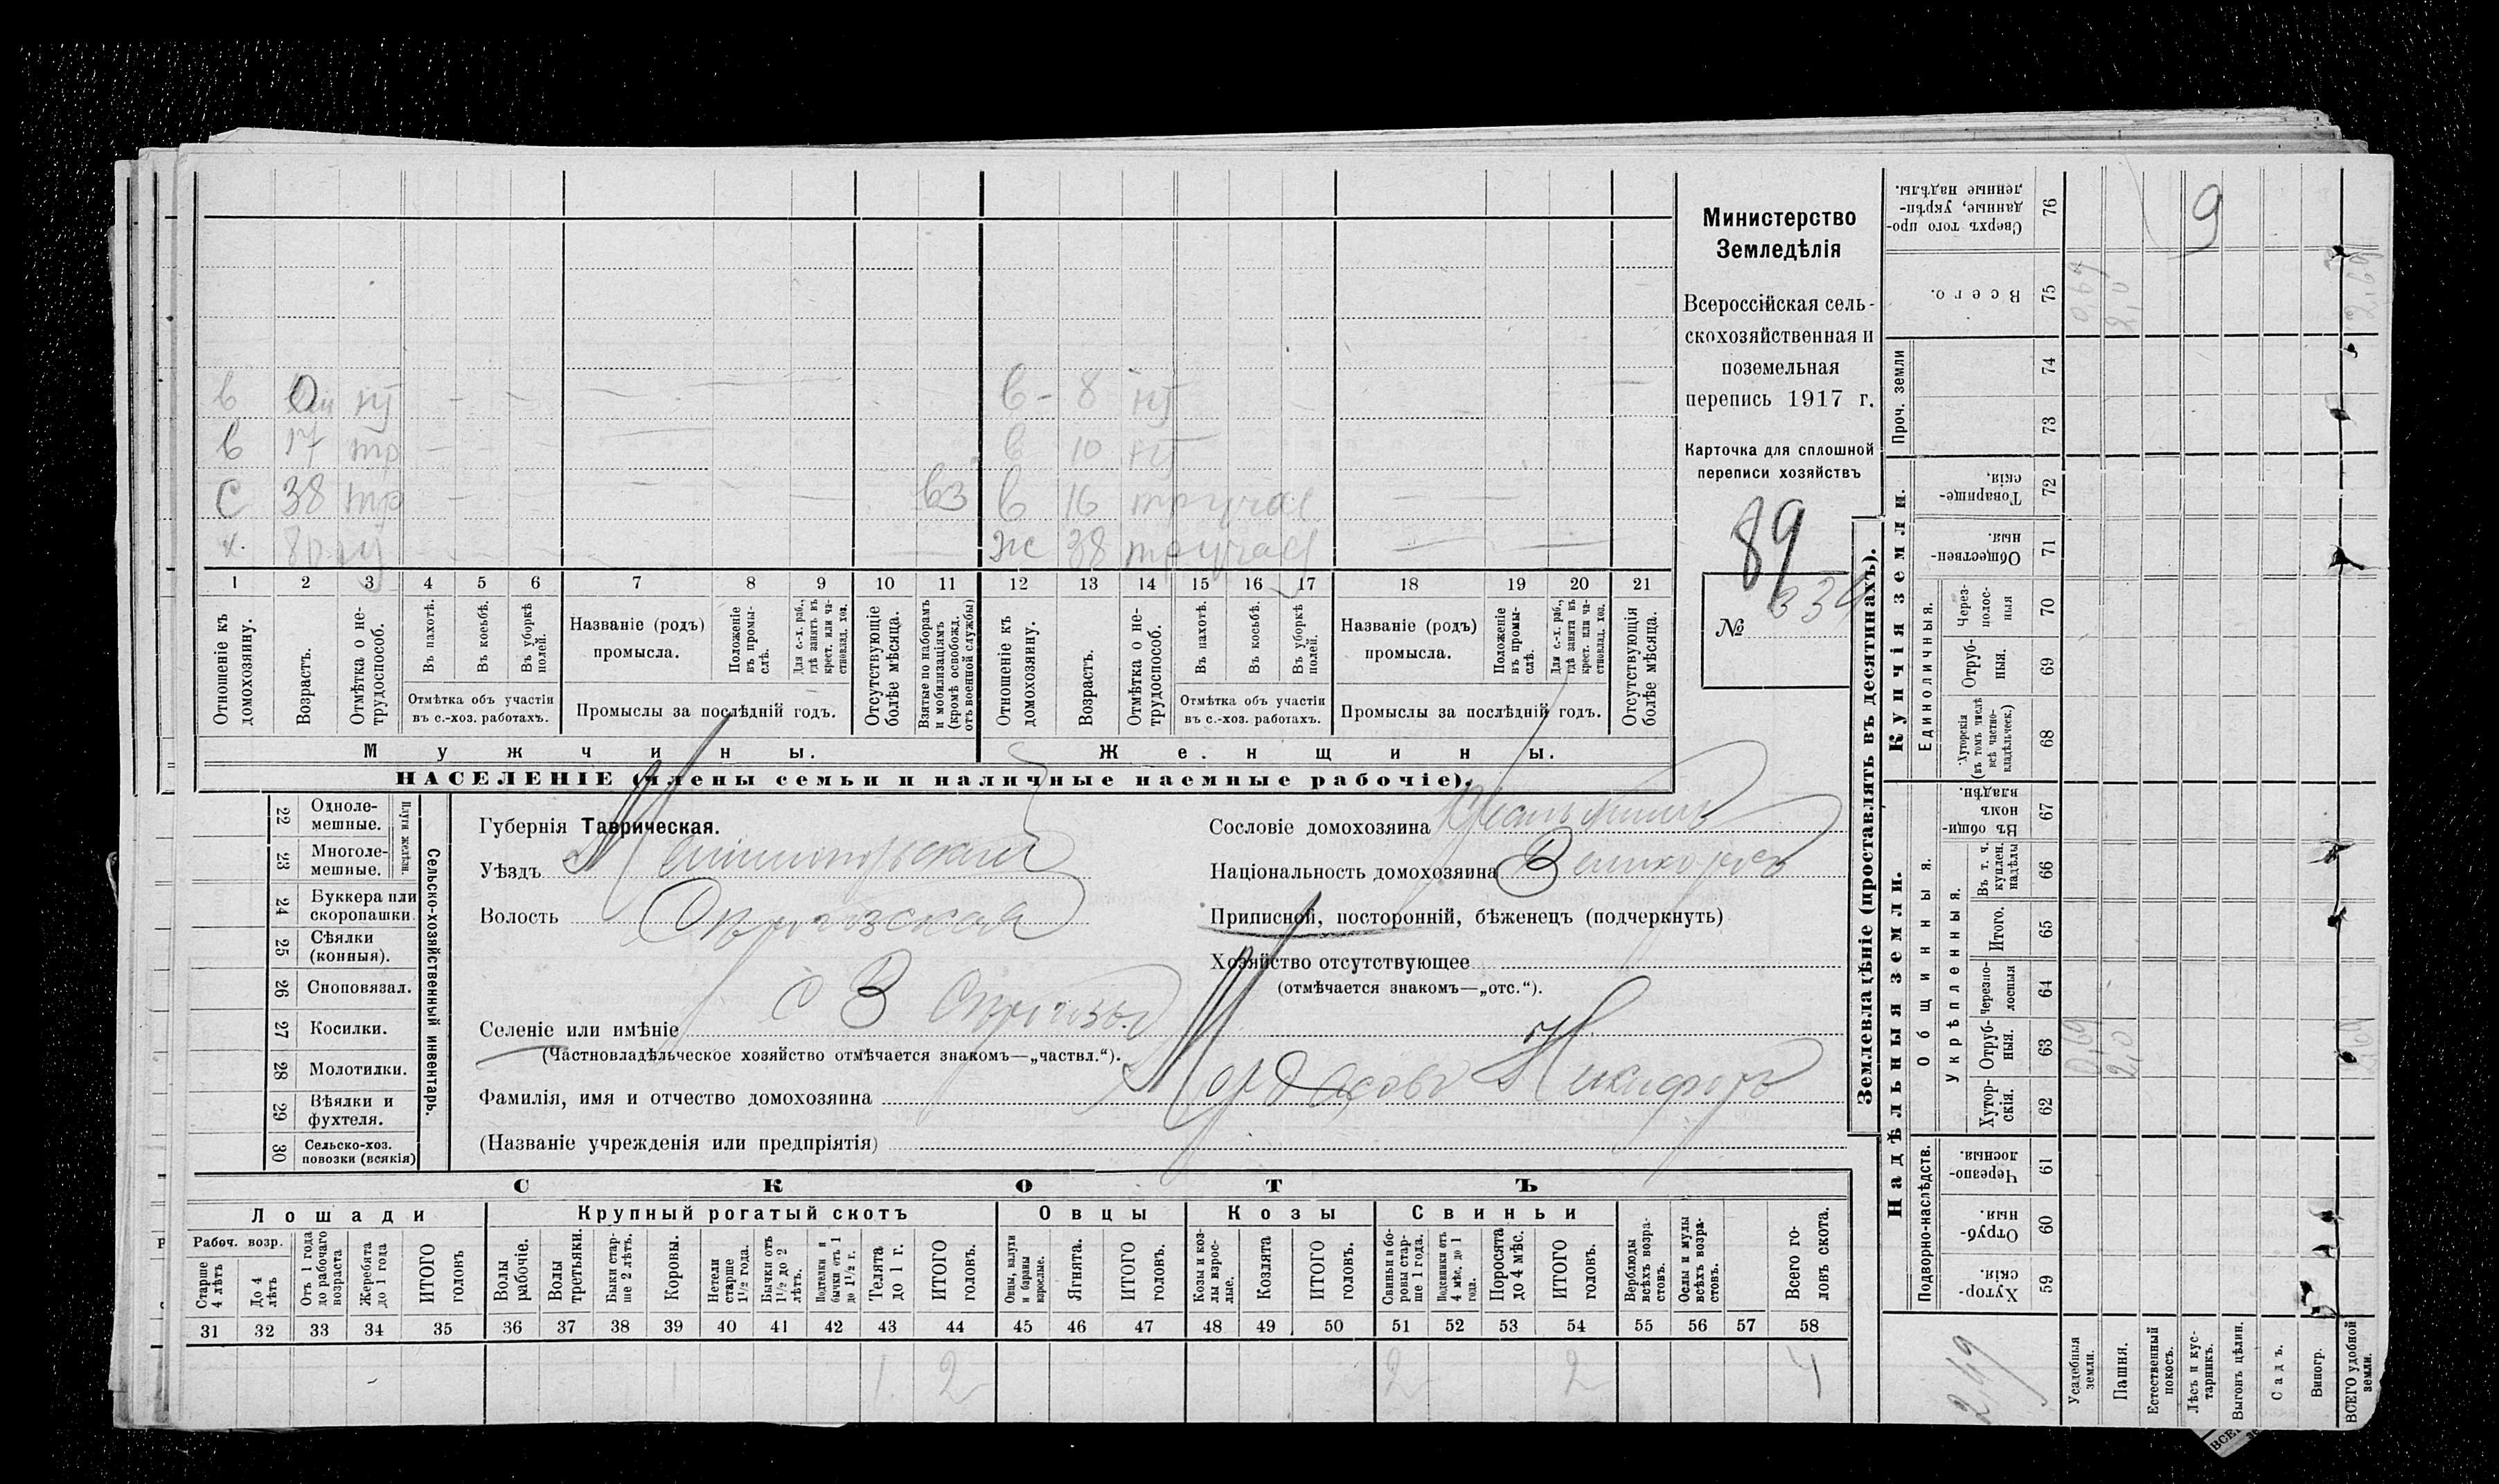 Министерство
Земледѣлія
Всероссійская сель-
скохозяйственная и
поземельная
перепись 1917 г.
Карточка для сплошной
переписи хозяйствъ
89
№ 334
в нт — — в - 8 нт
в 17 тр — — в 10 нт
с 38 тр — — вз в 16 тр
80 — — ж 38 тр
1 2 3 4 5 6 7 8 9 10 11 12 13 14 15 16 17 18 19 20 21
Отношеніе къ домохозяину.
Возрастъ.
Отмѣтка о не-трудоспособ.
Въ пахотѣ.
Въ косьбѣ.
Въ уборкѣ полей.
Отмѣтка объ участіи въ с.-хоз. работахъ.
Названіе (родъ) промысла.
Положеніе въ промы-слѣ.
Для с.-х. раб., гдѣ занятъ въ крест. или ча-стновлад. хоз.
Промыслы за послѣдній годъ.
Отсутствующіе болѣе мѣсяца.
Взятые по наборамъ и мобилизаціямъ (кромѣ освобожд. отъ военной службы)
Отношеніе къ домохозяину.
Возрастъ.
Отмѣтка о не-трудоспособ.
Въ пахотѣ.
Въ косьбѣ.
Въ уборкѣ полей.
Отмѣтка объ участіи въ с.-хоз. работахъ.
Названіе (родъ) промысла.
Положеніе въ промы-слѣ.
Для с.-х. раб., гдѣ занята въ крест. или ча-стновлад. хоз.
Промыслы за послѣдній годъ.
Отсутствующія болѣе мѣсяца.
Мужчины.
Женщины.
НАСЕЛЕНІЕ (члены семьи и наличные наемные рабочіе).
22 Одноле-мешные.
23 Многоле-мешные.
Плуги желѣзн.
24 Буккера или скоропашки.
25 Сѣялки (конныя).
26 Сноповязал.
27 Косилки.
28 Молотилки.
29 Вѣялки и фухтеля.
30 Сельско-хоз. повозки (всякія)
Сельско-хозяйственный инвентарь.
Губернія Таврическая.
Уѣздъ Мелитопольскій
Волость
Селеніе или имѣніе с В
(Частновладѣльческое хозяйство отмѣчается знакомъ—„частвл.“).
Фамилія, имя и отчество домохозяина Мордасовъ Никифоръ
(Названіе учрежденія или предпріятія)
Сословіе домохозяина
Національность домохозяина Великоросъ
Приписной, посторонній, бѣженецъ (подчеркнуть)
Хозяйство отсутствующее
(отмѣчается знакомъ—„отс.“).
СКОТЪ
Лошади
Рабоч. возр.
Старше 4 лѣтъ
До 4 лѣтъ
Отъ 1 года до рабочаго возраста
Жеребята до 1 года
ИТОГО головъ
Крупный рогатый скотъ
Волы рабочіе.
Волы третьяки.
Быки стар-ше 2 лѣтъ.
Коровы.
Нетели старше 1½ года.
Бычки отъ 1½ до 2 лѣтъ.
Подтелки и бычки отъ 1 до 1½ г.
Телята до 1 г.
ИТОГО головъ.
Овцы
Овцы, валухи и бараны взрослые.
Ягнята.
ИТОГО головъ.
Козы
Козы и коз-лы взрос-лые.
Козлята
ИТОГО головъ.
Свиньи
Свиньи и бо-ровы стар-ше 1 года.
Подсвинки отъ 4 мѣс. до 1 года.
Поросята до 4 мѣс.
ИТОГО головъ.
Верблюды всѣхъ возра-стовъ.
Ослы и мулы всѣхъ возра-стовъ.
Всего го-ловъ скота.
31 32 33 34 35 36 37 38 39 40 41 42 43 44 45 46 47 48 49 50 51 52 53 54 55 56 57 58
1 1 2 2 2 4
Землевладѣніе (проставлять въ десятинахъ).
Надѣльныя земли.
Купчія земли.
Подворно-наслѣдств.
Общинныя.
Укрѣпленныя.
Единоличныя.
Проч. земли
Хутор-скія. 59
Отруб-ныя. 60
Черезпо-лосныя. 61
Хутор-скія. 62
Отруб-ныя. 63
Черезпо-лосныя 64
Итого. 65
Въ т. ч. куплен. надѣлы 66
Въ общи-номъ владѣн. 67
Хуторскія (въ томъ числѣ всѣ частно-владѣльческ.) 68
Отруб-ныя. 69
Через-полос-ныя 70
Обществен-ныя. 71
Товарище-скія. 72
73
74
Всего. 75
Сверхъ того про-данные, укрѣп-ленные надѣлы. 76
9
0,69
2,0
2,69
249
Усадебныя земли.
Пашня.
Естественный покосъ.
Лѣсъ и кус-тарникъ.
Выгонъ цѣлин.
Садъ.
Виногр.
ВСЕГО удобной земли.